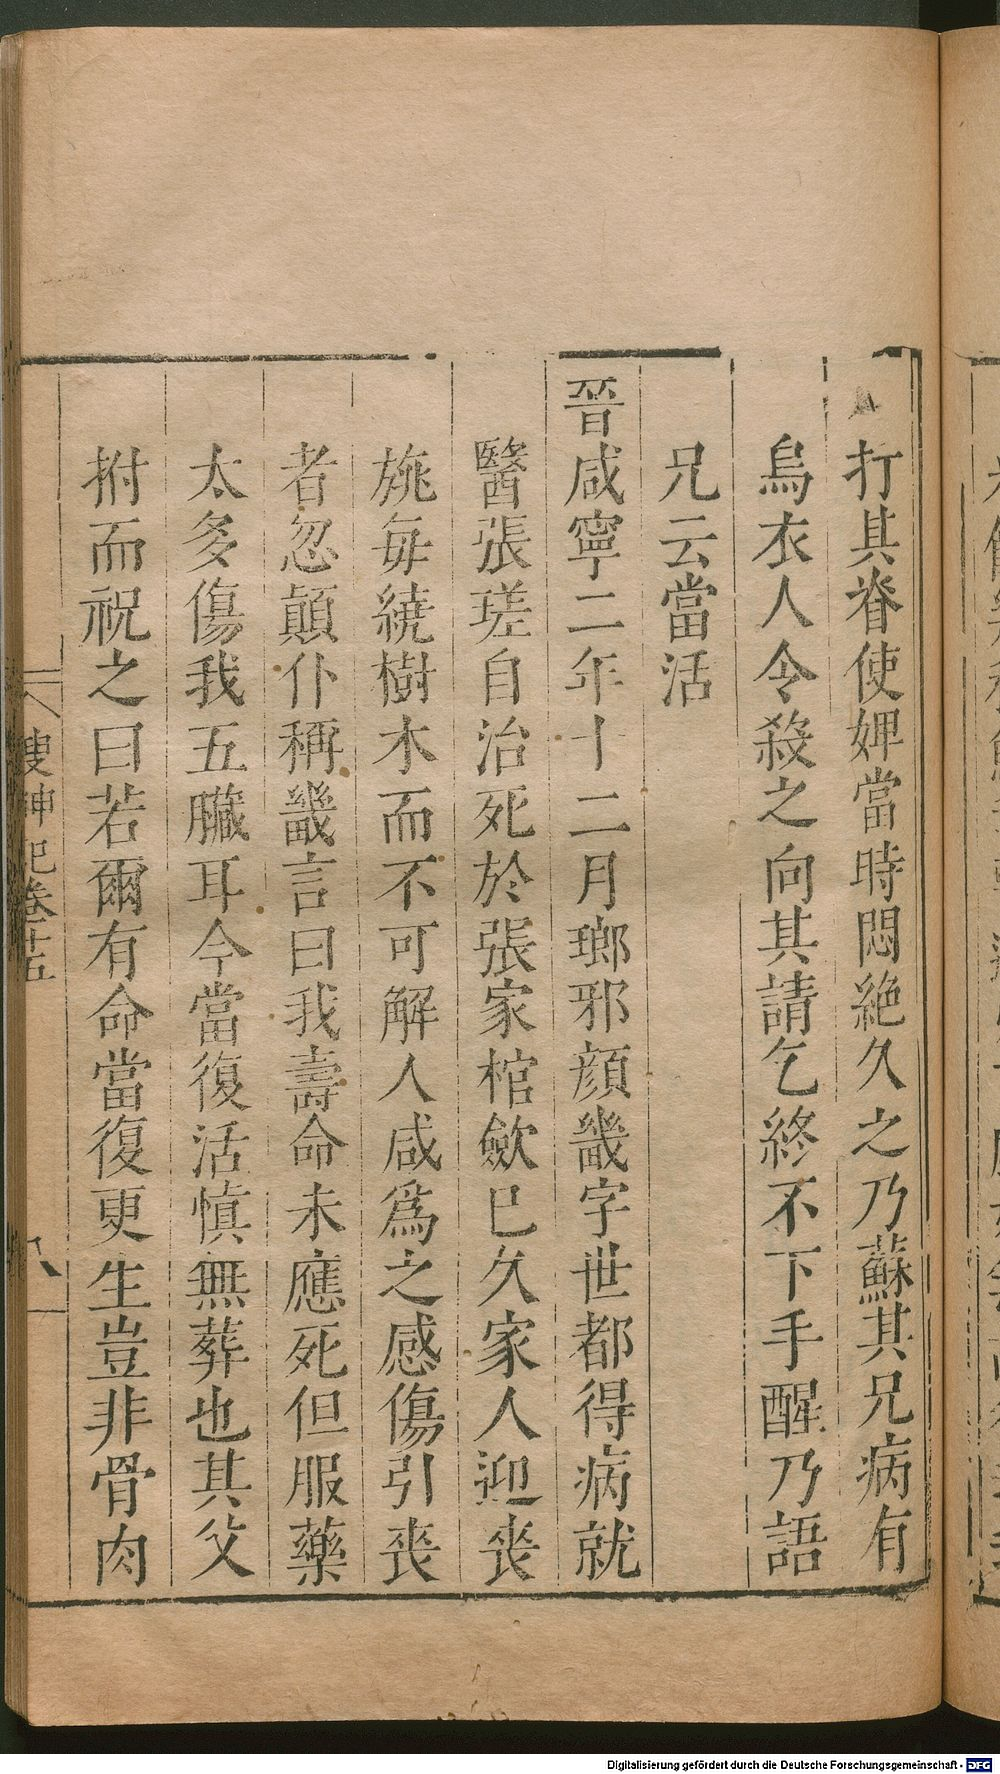 打其脊使婢當時悶絕久之乃蘇其兄病有
烏衣人令殺之向其請乞終不下手醒乃語
兄云當活
晉咸寧二年十二月瑯邪顔畿字世都得病就
醫張瑳自治死於張家棺歛巳久家人迎喪
旐每繞樹木而不可解人咸爲之感傷引喪
者忽顛仆稱畿言曰我壽命未應死但服藥
太多傷我五臟耳今當復活慎無葬也其父
拊而祝之曰若爾有命當復更生豈非骨肉
搜神記卷十五
八
Digitalisierung gefördert durch die Deutsche Forschungsgemeinschaft - DFG